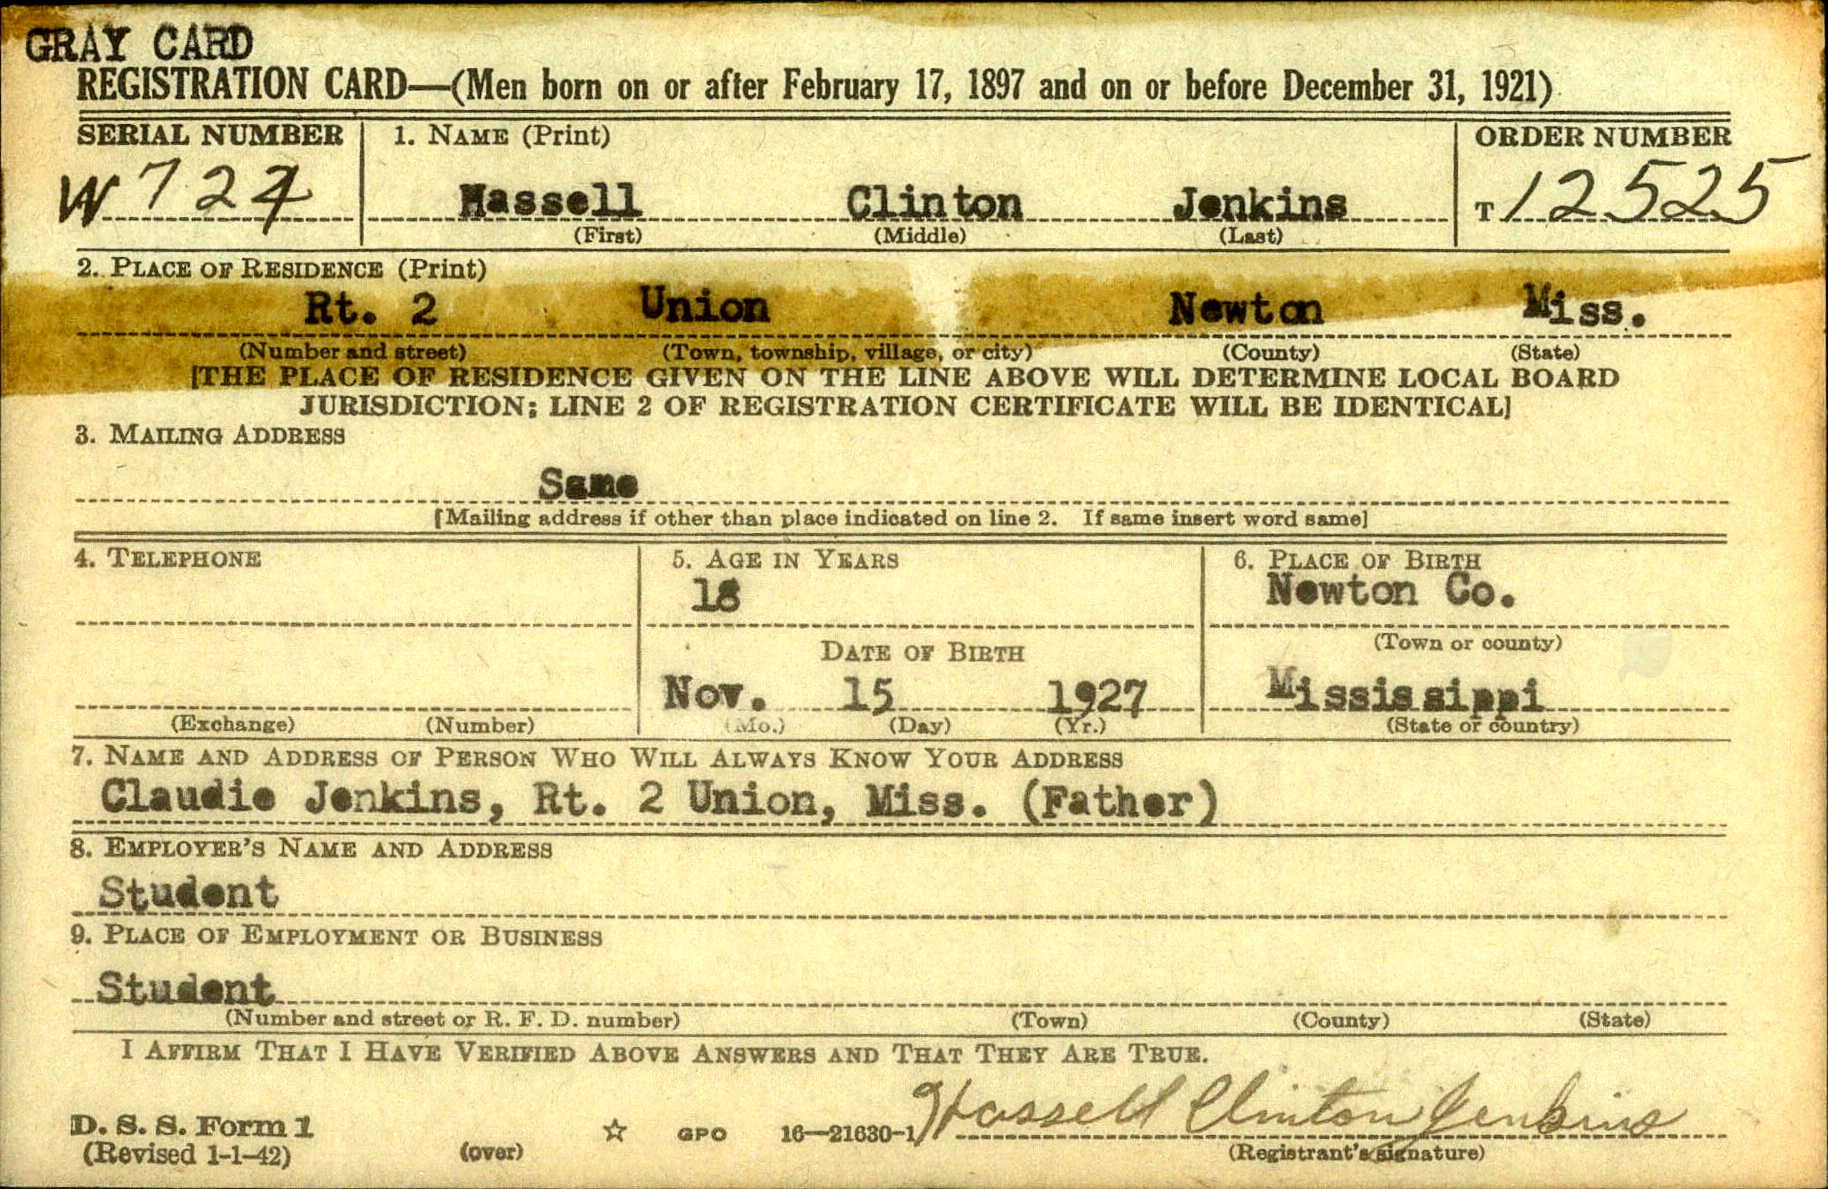 GRAY CARD
REGISTRATION CARD—(Men born on or after February 17, 1897 and on or before December 31, 1921)
SERIAL NUMBER 1. NAME (Print) ORDER NUMBER
W 724 Hassell Clinton Jenkins T 12525
(First) (Middle) (Last)
2. PLACE OF RESIDENCE (Print)
Rt. 2 Union Newton Miss.
(Number and street) (Town, township, village, or city) (County) (State)
[THE PLACE OF RESIDENCE GIVEN ON THE LINE ABOVE WILL DETERMINE LOCAL BOARD
JURISDICTION; LINE 2 OF REGISTRATION CERTIFICATE WILL BE IDENTICAL]
3. MAILING ADDRESS
Same
[Mailing address if other than place indicated on line 2. If same insert word same]
4. TELEPHONE 5. AGE IN YEARS 6. PLACE OF BIRTH
18 Newton Co.
DATE OF BIRTH (Town or county)
Nov. 15 1927 Mississippi
(Exchange) (Number) (Mo.) (Day) (Yr.) (State or country)
7. NAME AND ADDRESS OF PERSON WHO WILL ALWAYS KNOW YOUR ADDRESS
Claudie Jenkins, Rt. 2 Union, Miss. (Father)
8. EMPLOYER'S NAME AND ADDRESS
Student
9. PLACE OF EMPLOYMENT OR BUSINESS
Student
(Number and street or R. F. D. number) (Town) (County) (State)
I AFFIRM THAT I HAVE VERIFIED ABOVE ANSWERS AND THAT THEY ARE TRUE.
Hassell Clinton Jenkins
D. S. S. Form 1 GPO 16—21630-1
(Revised 1-1-42) (over) (Registrant's signature)